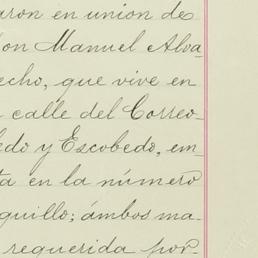 aron en union de
on Manuel Alva-
echo, que vive en
calle del Correo
edo y Escobedo, en-
ta en la número
quillo; ámbos ma-
requerida por-